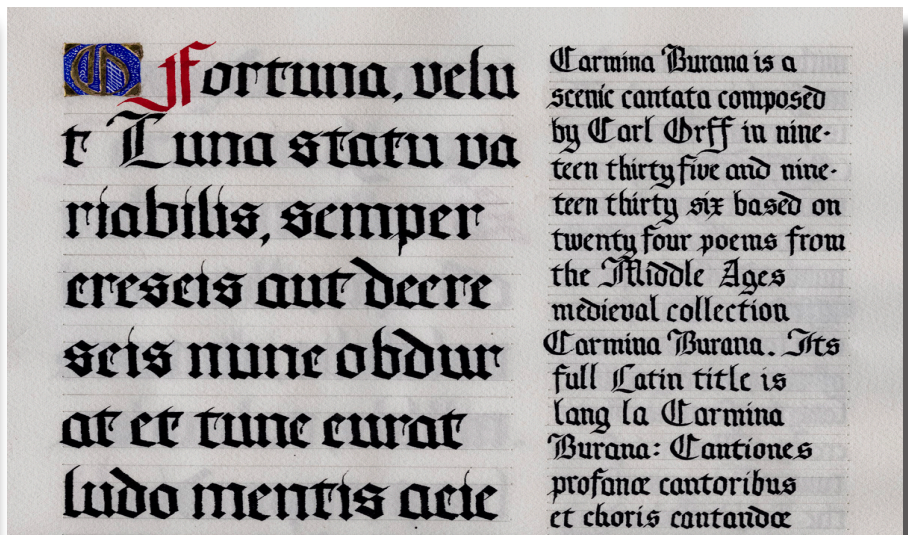 O Fortuna, velu
t Luna statu va
riabilis, semper
crescis aut decre
scis nunc obdur
at et tunc curat
ludo mentis acie
Carmina Burana is a
scenic cantata composed
by Carl Orff in nine-
teen thirty five and nine-
teen thirty six based on
twenty four poems from
the Middle Ages
medieval collection
Carmina Burana. Its
full Latin title is
lang la Carmina
Burana: Cantiones
profanæ cantoribus
et choris cantandæ